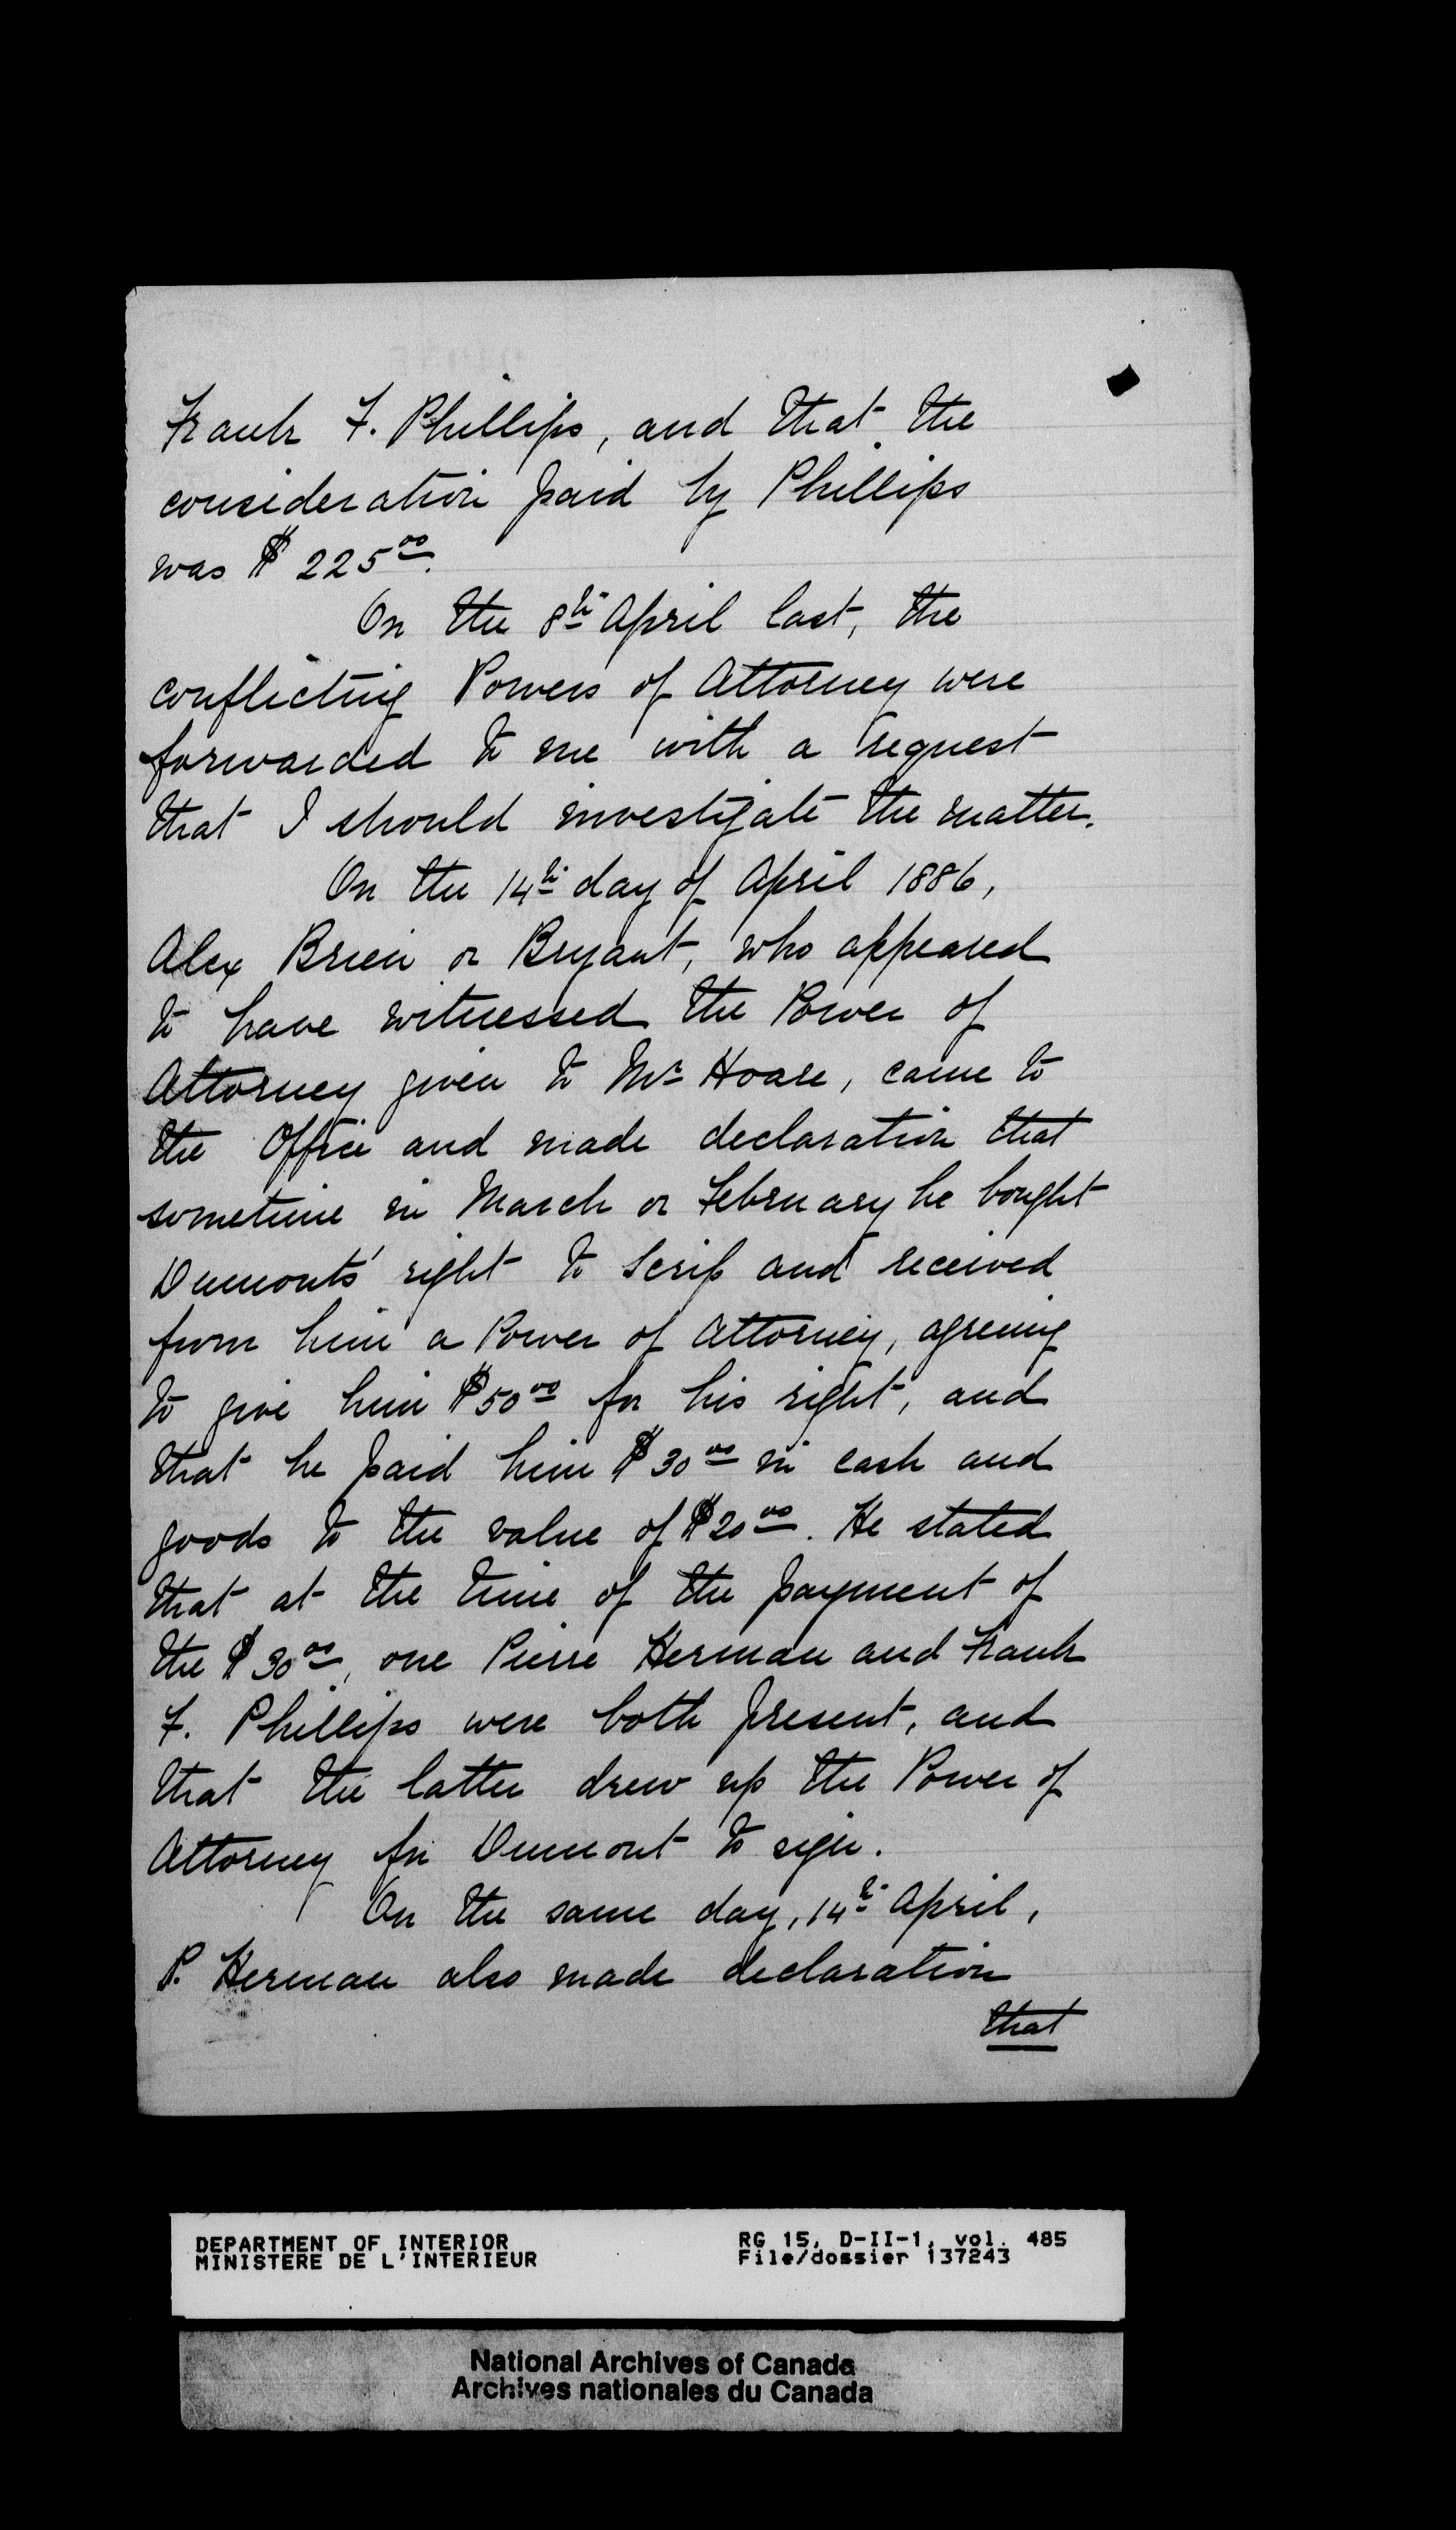 Frank F. Phillips, and that the
consideration paid by Phillips
was $225.00.
On the 8th April last, the
conflicting Powers of Attorney were
forwarded to me with a request
that I should investigate the matter.
On the 14th day of April 1886,
Alex Brien or Bryant, who appeared
to have witnessed the Power of
Attorney given to Mr Hoare, came to
the Office and made declaration that
sometime in March or February he bought
Dumonts' right to Scrip and received
from him a Power of Attorney, agreeing
to give him $50.00 for his right, and
that he paid him $30.00 in cash and
goods to the value of $20.00. He stated
that at the time of the payment of
the $30.00, one Pierre Herman and Frank
F. Phillips were both present, and
that the latter drew up the Power of
Attorney for Dumont to sign.
On the same day, 14th April,
P. Herman also made declaration
that
DEPARTMENT OF INTERIOR
MINISTERE DE L'INTERIEUR
RG 15, D-II-1, vol. 485
File/dossier 137243
National Archives of Canada
Archives nationales du Canada